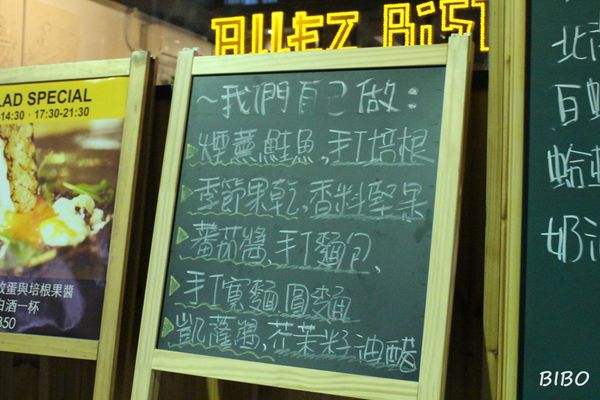 BUEZ BiSt
LAD SPECIAL
14:30．17:30-21:30
蛋與培根果醬
白酒一杯
350
～我們自己做：
煙薰鮭魚､手工培根
季節果乾､香料堅果
蕃茄醬､手工麵包､
手工寬麵､圓麵
凱薩醬､芥茉籽油醋
北
百
蛤
奶油
BIBO